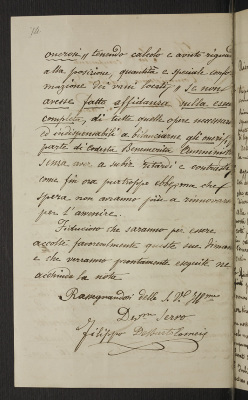 onerosi, e tenendo calcolo e avuto riguardo
alla posizione, quantità e speciale confor
mazione dei vini locati, e se non
avesse fatto affidanza sulla esecu
completa, di tutte quelle opere necessarie
ed indispensabili a bilanciarne gli oneri, p
parte di Codesta Benemerita Amminist
senza aver a subir ritardi e contrasti
come fin ora purtroppo ebbe, ma che
spera non avranno più a rinnovarsi
per l'avvenire.
Fiducioso che saranno per essere
accolte favorevolmente queste sue domande
e che verranno prontamente eseguite ne
acchiude la nota
Rassegnandosi della S. V. Ill.ma
Dev.mo Servo
Filippo